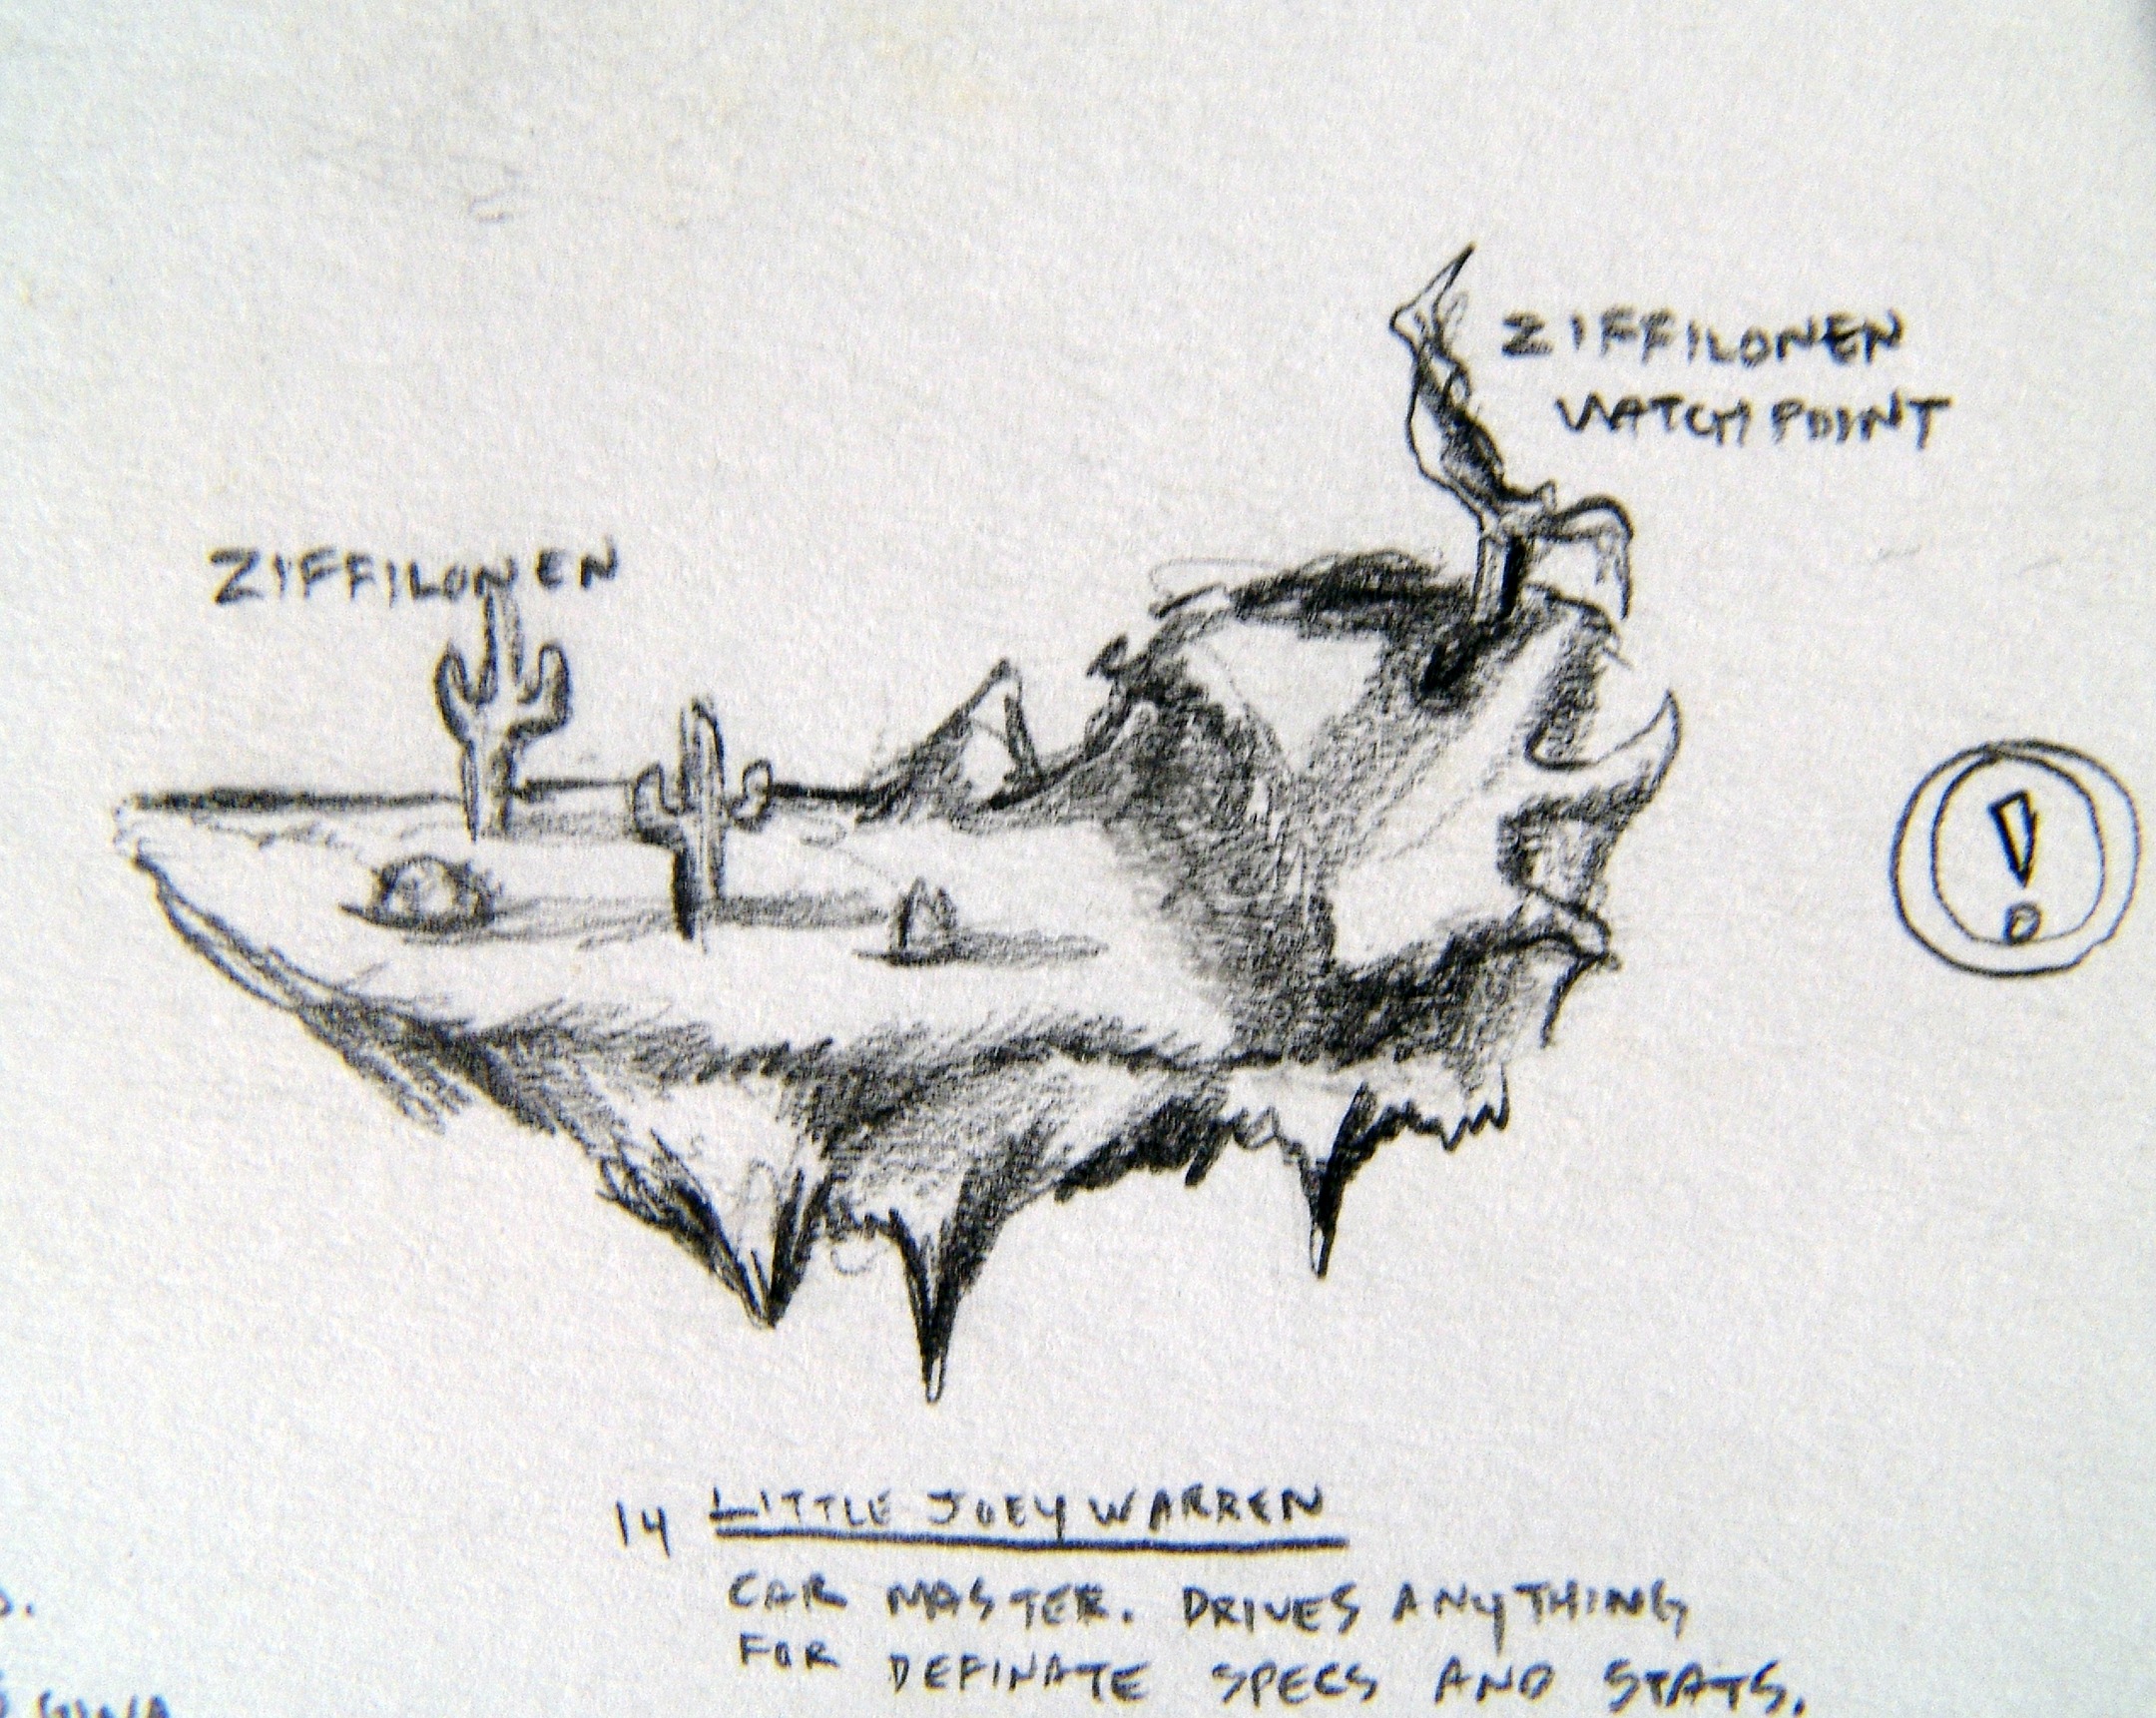 ZIFFILONEN
WATCH POINT
ZIFFILONEN
!
14 LITTLE JOEY WARREN
CAR MASTER. DRIVES ANYTHING
FOR DEFINATE SPECS AND STATS.